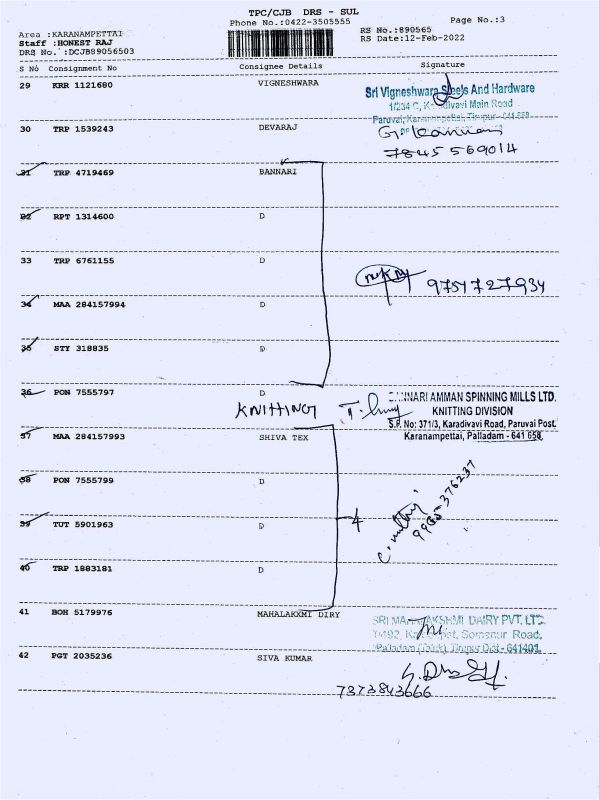 TPC/CJB DRS - SUL
Phone No.:0422-3505555
Page No.:3
Area :KARANAMPETTAI
Staff :HONEST RAJ
DRS No. :DCJB89056503
RS No.:890565
RS Date:12-Feb-2022
S No Consignment No Consignee Details Signature
29 KRR 1121680 VIGNESHWARA
Sri Vigneshwara Steels And Hardware
1/234 C, Karadivavi Main Road
Paruvai, Karanampettai, Tirupur - 641 658
30 TRP 1539243 DEVARAJ
7845569014
31 TRP 4719469 BANNARI
32 RPT 1314600 D
33 TRP 6761155 D
9757727934
34 MAA 284157994 D
35 STY 318835 D
36 PON 7555797 D
KNITTING
BANNARI AMMAN SPINNING MILLS LTD.
KNITTING DIVISION
S.F. No: 371/3, Karadivavi Road, Paruvai Post
Karanampettai, Palladam - 641 658.
37 MAA 284157993 SHIVA TEX
38 PON 7555799 D
39 TUT 5901963 D
4
9965376237
40 TRP 1883181 D
41 BOH 5179976 MAHALAKXMI DIRY
SRI MAHALAKSHMI DAIRY PVT. LTD.
Road,
Palladam (Taluk), Tirupur Dist - 641401.
42 PGT 2035236 SIVA KUMAR
7373843666